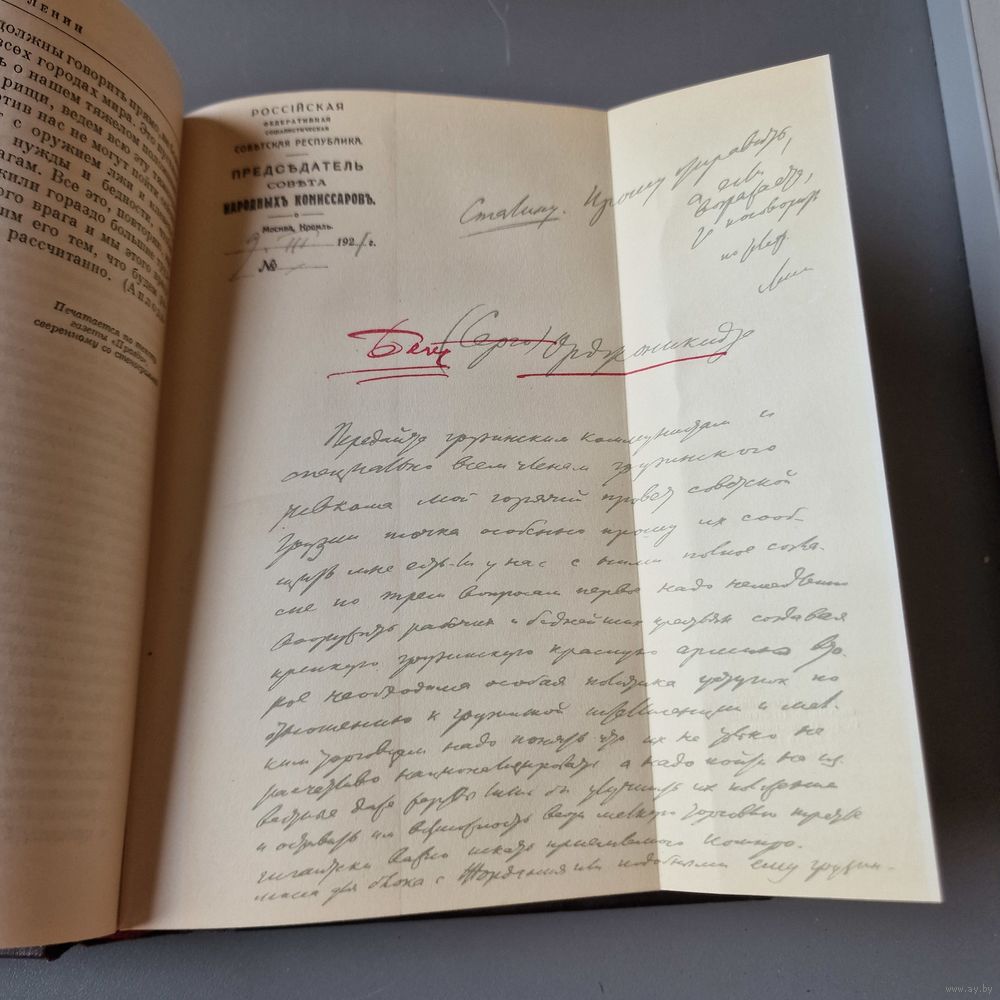 ЛЕНИН
должны говорить прямо
всех городах мира. Это
о нашем тяжелом
рищи, ведем всю эту
отив нас не могут пойти
с оружием лжи и
нужды и бедности,
агам. Все это,
жили гораздо большие
ого врага и мы этого
им его тем, что
рассчитанно. (Апло
Печатается по
газеты «Правда
сверенному со
РОССІЙСКАЯ
ФЕДЕРАТИВНАЯ
СОЦІАЛИСТИЧЕСКАЯ
СОВѢТСКАЯ РЕСПУБЛИКА.
ПРЕДСѢДАТЕЛЬ
СОВѢТА
НАРОДНЫХЪ КОМИССАРОВЪ.
Москва, Кремль.
192 г.
№
Сталину. Прошу отправить,
а если
возражаете,
Ленин
(Серго) Орджоникидзе
Передайте грузинским коммунистам и
специально всем членам грузинского
ревкома мой горячий привет советской
Грузии точка особенно прошу их сооб-
щить мне есть ли у нас с ними полное согла-
сие по трем вопросам первое надо немедленно
вооружить рабочих и беднейших крестьян создавая
крепкую грузинскую красную армию Вто-
рое необходима особая политика уступок по
отношению к грузинской интеллигенции и мел-
ким торговцам надо понять что их не только не
расчетливо национализировать а надо пойти на из-
вестные даже жертвы лишь бы улучшить их положение
и оставить им возможность вести мелкую торговлю третье
гигантски важно искать приемлемого компро-
мисса для блока с Жордания или подобными ему грузин-
www.ay.by